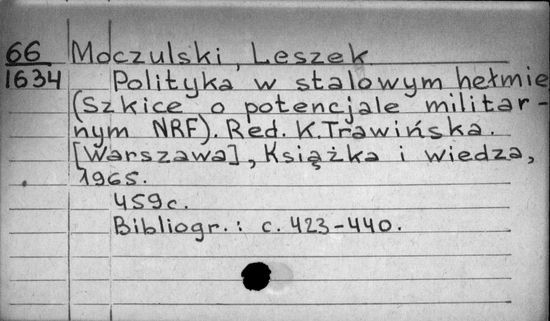 66 Moczulski, Leszek
1634 Polityka w stalowym hełmie
(Szkice o potencjale militar-
nym NRF). Red. K. Trawińska.
[Warszawa], Książka i wiedza,
1965.
459c.
Bibliogr.: c. 423-440.